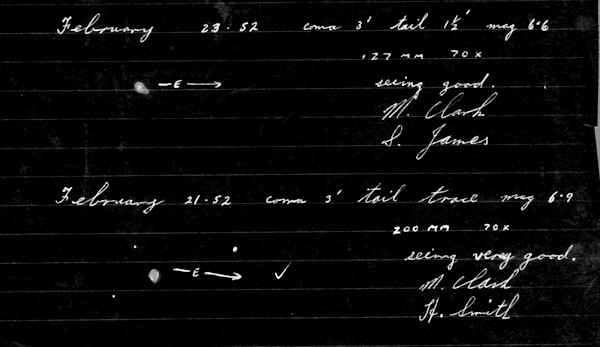 February 23·52 coma 3' tail 1½' mag 6·6
127 MM 70X
— E →
seeing good.
M. Clark
S. James
February 21·52 coma 3' tail trace mag 6·9
200 MM 70X
— E → ✓
seeing very good.
M. Clark
H. Smith